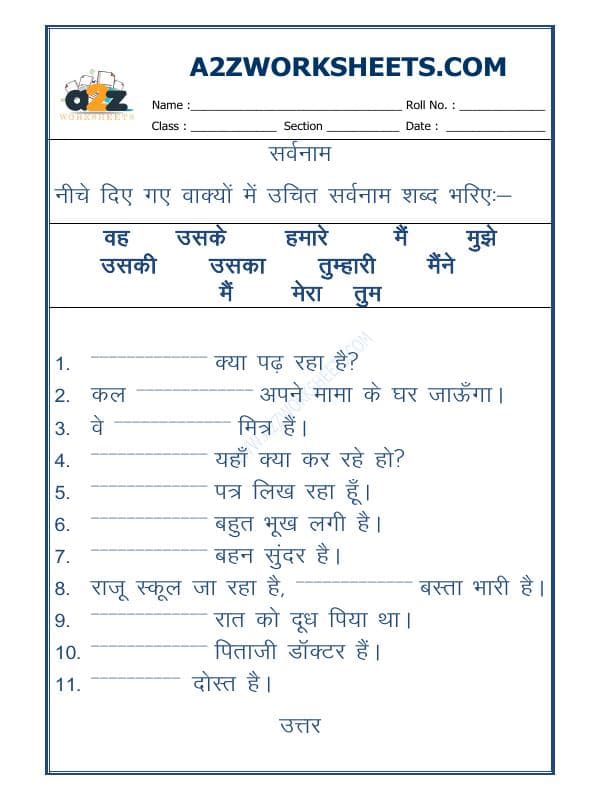 A2ZWORKSHEETS.COM
a2z
WORKSHEETS
Name :______________________________ Roll No. : ____________
Class : ____________ Section __________ Date : ______________
सर्वनाम
नीचे दिए गए वाक्यों में उचित सर्वनाम शब्द भरिए:–
वह उसके हमारे मैं मुझे
उसकी उसका तुम्हारी मैंने
मैं मेरा तुम
1. _____________ क्या पढ़ रहा है?
2. कल _____________ अपने मामा के घर जाऊँगा।
3. वे _____________ मित्र हैं।
4. _____________ यहाँ क्या कर रहे हो?
5. _____________ पत्र लिख रहा हूँ।
6. _____________ बहुत भूख लगी है।
7. _____________ बहन सुंदर है।
8. राजू स्कूल जा रहा है, _____________ बस्ता भारी है।
9. _____________ रात को दूध पिया था।
10. _____________ पिताजी डॉक्टर हैं।
11. __________ दोस्त है।
उत्तर
WWW.A2ZWORKSHEETS.COM